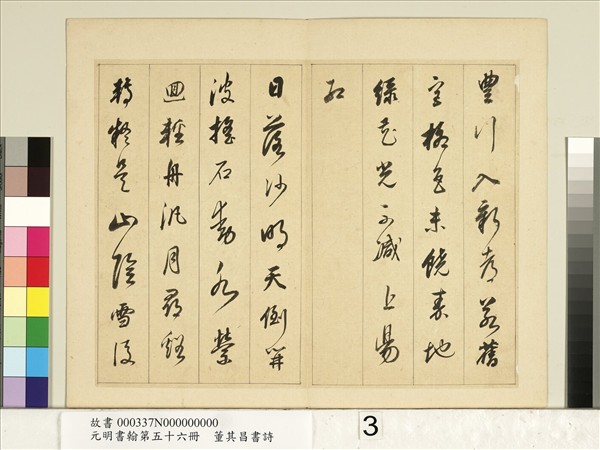 豐行入新都若舊
宮柳色未饒秦地
綠花光不減上陽
紅
日落沙明天倒開
波搖石動水縈
迴輕舟汎月尋谿
轉疑是山陰雪後
故書 000337N000000000
元明書翰第五十六冊 董其昌書詩
3